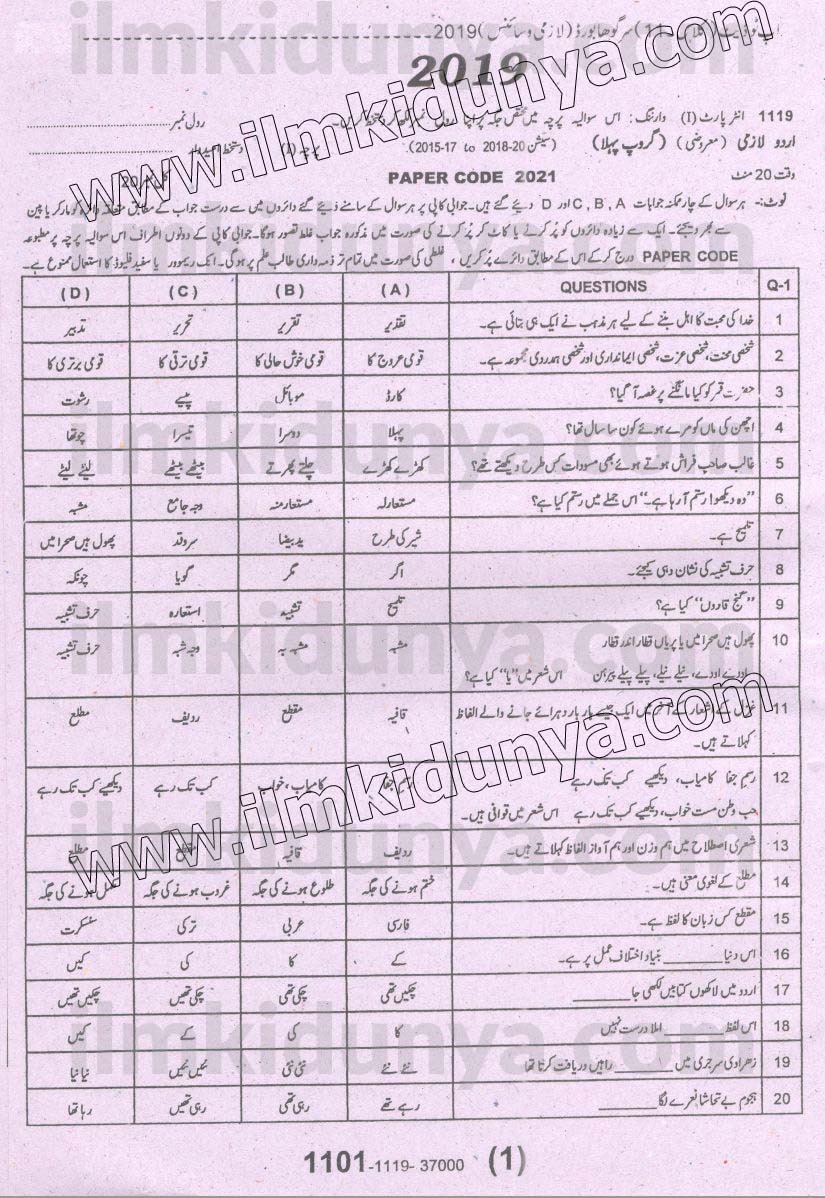 اپ ٹو ڈیٹ (کلاس - 11) سرگودھا بورڈ (لازمی و سائنس) 2019
2019
1119 انٹر پارٹ (I) وارننگ: اس سوالیہ پرچہ میں مختص جگہ پر اپنا رول نمبر لکھ کر دستخط کریں۔ رول نمبر
اردو لازمی (معروضی) (گروپ پہلا) (سیشن 2015-17 to 2018-20) پرچہ (I) دستخط امیدوار
وقت 20 منٹ PAPER CODE 2021 کل نمبر 20
نوٹ:- ہر سوال کے چار ممکنہ جوابات C , B , A اور D دیئے گئے ہیں۔ جوابی کاپی پر ہر سوال کے سامنے دیئے گئے دائروں میں سے درست جواب کے مطابق متعلقہ دائرہ کو مارکر یا پین
سے بھر دیجئے۔ ایک سے زیادہ دائروں کو پُر کرنے یا کاٹ کر پُر کرنے کی صورت میں مذکورہ جواب غلط تصور ہوگا۔ جوابی کاپی کے دونوں اطراف اس سوالیہ پرچہ پر مطبوعہ
PAPER CODE درج کر کے اس کے مطابق دائرے پُر کریں، غلطی کی صورت میں تمام تر ذمہ داری طالب علم پر ہوگی۔ انک ریموور یا سفید فلیوڈ کا استعمال ممنوع ہے۔
Q-1 QUESTIONS (A) (B) (C) (D)
1 خدا کی محبت کا اہل بننے کے لیے ہر مذہب نے ایک ہی بتائی ہے۔ تقدیر تقریر تحریر تدبیر
2 شخصی محنت، شخصی عزت، شخصی ایمانداری اور شخصی ہمدردی مجموعہ ہے۔ قومی عروج کا قومی خوش حالی کا قومی ترقی کا قومی برتری کا
3 حضرت قمر کو کیا مانگنے پر غصہ آ گیا؟ کارڈ موبائل پیسے رشوت
4 اچھن کی ماں کو مرے ہوئے کون سا سال تھا؟ پہلا دوسرا تیسرا چوتھا
5 غالب صاحب فراش ہوتے ہوئے بھی مسودات کس طرح دیکھتے تھے؟ کھڑے کھڑے چلتے پھرتے بیٹھے بیٹھے لیٹے لیٹے
6 ”وہ دیکھو! رستم آ رہا ہے۔“ اس جملے میں رستم کیا ہے؟ مستعار لہ مستعار منہ وجہ جامع مشبہ
7 تلمیح ہے۔ شیر کی طرح یدِ بیضا سرو قد پھول ہیں صحرا میں
8 حرف تشبیہ کی نشان دہی کیجئے۔ اگر مگر گویا چونکہ
9 ”گنج قاروں“ کیا ہے؟ تلمیح تشبیہ استعارہ حرف تشبیہ
10 پھول ہیں صحرا میں یا پریاں قطار اندر قطار مشبہ مشبہ بہ وجہ شبہ حرف تشبیہ
اودے اودے، نیلے نیلے، پیلے پیلے پیرہن اس شعر میں ”یا“ کیا ہے؟
11 غزل کے اشعار کے آخر میں ایک جیسے بار بار دہرائے جانے والے الفاظ قافیہ مقطع ردیف مطلع
کہلاتے ہیں۔
12 رسمِ جفا کامیاب، دیکھیے کب تک رہے رسمِ جفا کامیاب، خواب کب تک رہے دیکھیے کب تک رہے
حب وطن مست خواب، دیکھیے کب تک رہے اس شعر میں قوافی ہیں۔
13 شعر کی اصطلاح میں ہم وزن اور ہم آواز الفاظ کہلاتے ہیں۔ ردیف قافیہ مقطع مطلع
14 مطلع کے لغوی معنی ہیں۔ ختم ہونے کی جگہ طلوع ہونے کی جگہ غروب ہونے کی جگہ مکمل ہونے کی جگہ
15 مقطع کس زبان کا لفظ ہے۔ فارسی عربی ترکی سنسکرت
16 اس دنیا ______ بنیاد اختلاف عمل پر ہے۔ کے کا کی کیں
17 اردو میں لاکھوں کتابیں لکھی جا ______ چکیں تھی چکی تھی چکی تھیں چکیں تھیں
18 اس لفظ ______ املا درست نہیں کا کی کے کیں
19 زھراوی سرجری میں ______ راہیں دریافت کرتا تھا نئے نئے نئی نئی نئیں نئیں نیا نیا
20 ہجوم بے تحاشا نعرے لگا ______ رہے تھے رہی تھی رہی تھیں رہا تھا
1101-1119- 37000 (1)
www.ilmkidunya.com
www.ilmkidunya.com
ilmkidunya.com
ilmkidunya.com
ilmkidunya.com
ilmkidunya.com
ilmkidunya.com